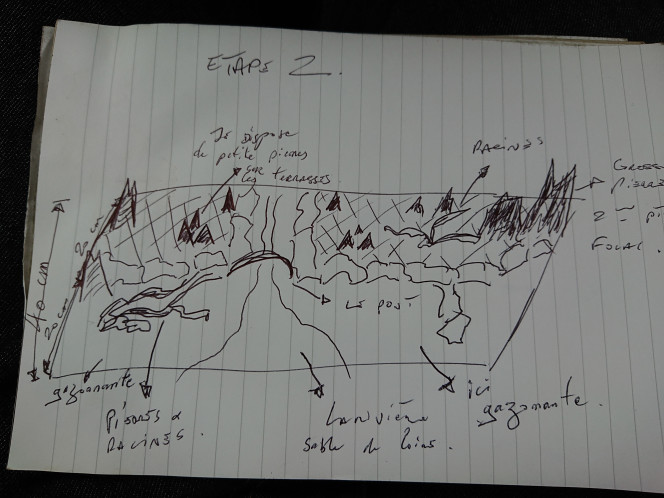 ETAPE 2.
Je dispose
de petite pierres
sur les terrasses
RACINES
GROSSE
PIERRE
2 e Pt
FOCAL.
40 cm
20 cm
20 cm
Le pont
gazonnante
Pierres &
RACINES.
La rivière
sable de Loire.
ici
gazonnante.